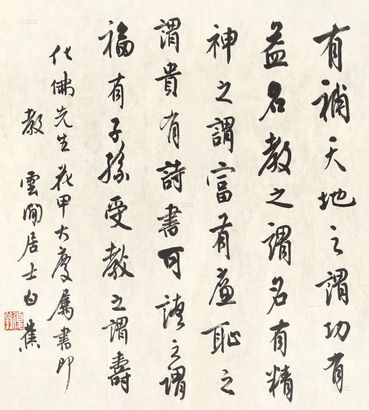 有補天地之謂功有
益名教之謂名有精
神之謂富有廉恥之
謂貴有詩書可讀之謂
福有子孫受教之謂壽
化佛先生花甲大慶屬書即
教 雲間居士白蕉